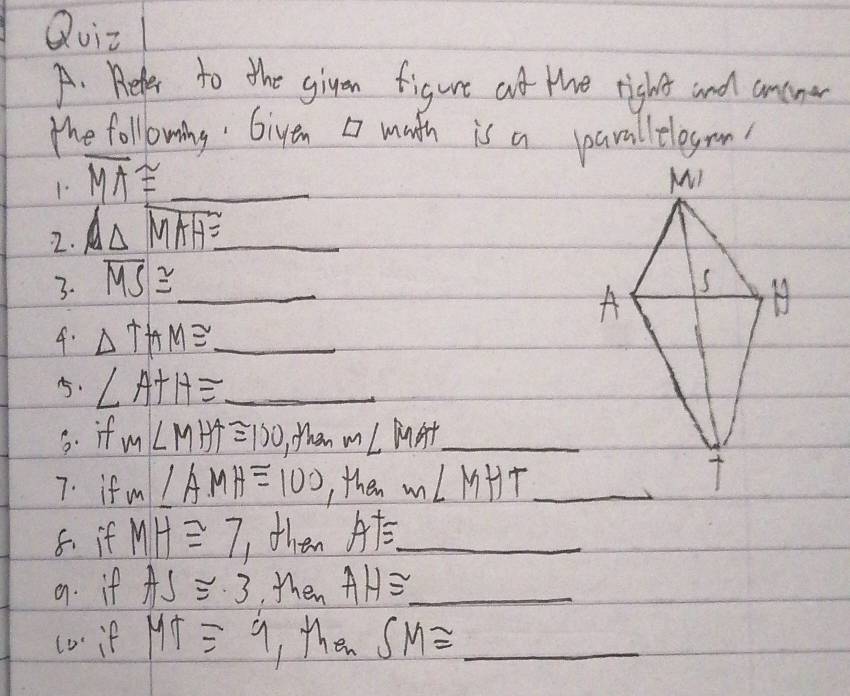 Quiz 1
A. Refer to the given figure at the right and answer
the following. Given ▱ math is a parallelogram
1. MA ≅ ________
2. Δ MAH ≅ ________
3. MS ≅ ________
4. Δ THM ≅ ________
5. ∠ ATH ≅ ________
6. if m ∠ MHT ≅ 100, then m ∠ MAT ________
7. if m ∠ AMH ≅ 100, then m ∠ MHT ________
8. if MH ≅ 7, then AT ≅ ________
9. if AS ≅ 3, then AH ≅ ________
10. if MT ≅ 9, then SM ≅ ________
M
S
A
H
T